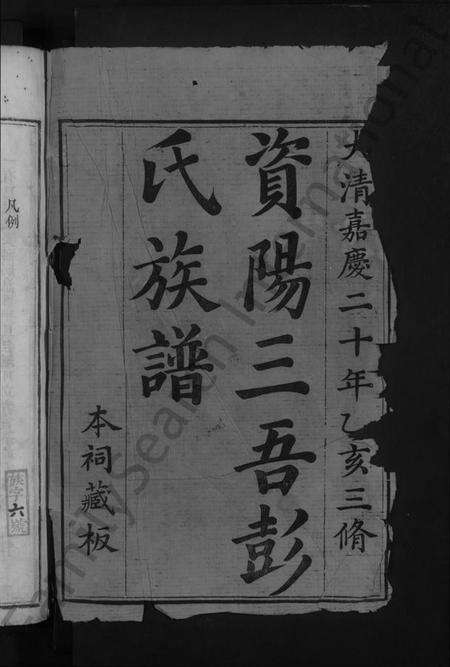 大清嘉慶二十年乙亥三脩
資陽三吾彭
氏族譜
本祠藏板
凡例
族字六號